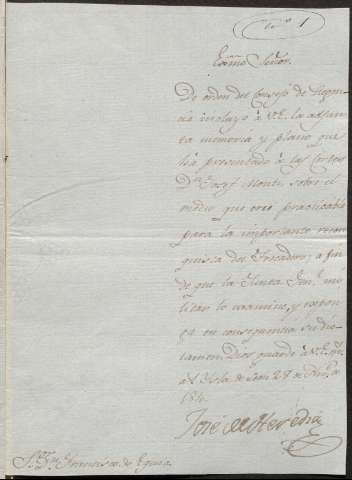 nº 1
Exmo Señor.
De orden del Consejo de Regen-
cia incluyo à V.E. la adjun-
ta memoria y plano que
ha presentado à las Cortes
Dn Josef Monti sobre el
medio que cree practicable
para la importante recon-
quista del Trocadero; a fin
de que la Junta militar
lo examine, y expon-
ga en consecuencia su dic-
tamen. Dios guarde à V.E. ms.
as. Isla de Leon 28 de
181
José de Heredia
Sor. Dn. Francisco de Eguia.